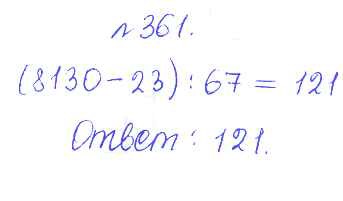 № 361.
(8130-23):67 = 121
Ответ: 121.